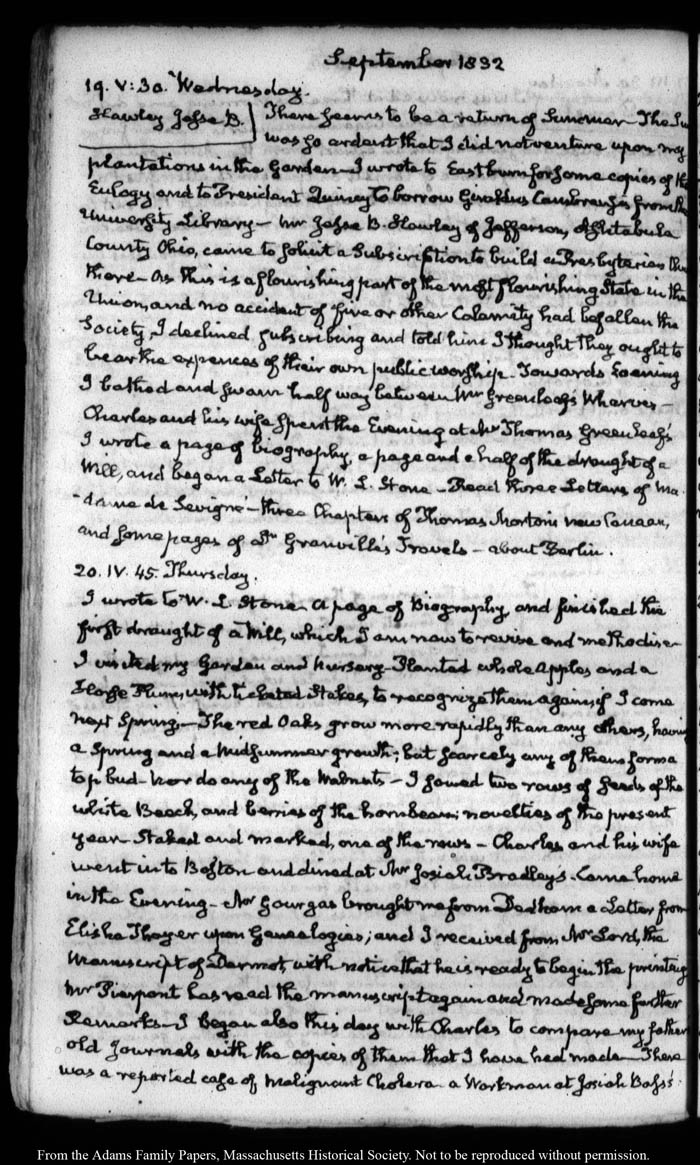 September 1832
19. V:30. Wednesday.
Hawley Jesse B. There seems to be a return of Summer. The Su
was so ardent that I did not venture upon my
plantations in the Garden—I wrote to Eastburn for some copies of the
Eulogy and to President Quincy to borrow Giraldus Cambrensis from the
University Library— Mr Jesse B. Hawley of Jefferson, Ashtabula
County Ohio, came to solicit a Subscription to build a Presbyterian
there— As this is a flourishing part of the most flourishing State in the
Union, and no accident of fire or other Calamity had befallen the
Society, I declined subscribing and told him I thought they ought to
bear the expences of their own public worship. Towards Evening
I bathed and swam half way between Mr Greenleaf's Wharves—
Charles and his wife spent the Evening at Mr Thomas Greenleaf's
I wrote a page of biography, a page and a half of the draught of a
Will, and began a Letter to W. L. Stone—Read three Letters of Ma-
-dame de Sevigné—three Chapters of Thomas Morton's new Canaan,
and some pages of Dr Granville's Travels—about Berlin.
20. IV. 45. Thursday.
I wrote to W. L. Stone—a page of Biography, and finished the
first draught of a Will, which I am now to revise and methodise—
I visited my Garden and Nursery—Planted whole Apples and a
Horse Plum, with ticketed Stakes, to recognize them again, if I come
next Spring—The red Oaks grow more rapidly than any others, having
a Spring and a Midsummer growth; but scarcely any of them form a
top bud—Nor do any of the Walnuts—I sowed two rows of seeds of the
white Beech, and berries of the hornbeam; novelties of the present
year—Staked and marked, one of the rows—Charles and his wife
went into Boston and dined at Mr Josiah Bradley's. Came home
in the Evening—Mr Gourgas brought me from Dedham a Letter from
Elisha Thayer upon Genealogies; and I received from Mr Lord, the
Manuscript of Dermot, with notice that he is ready to begin the printing
Mr Pierpont has read the manuscript again and made some further
Remarks—I began also this day with Charles to compare my father
old Journals with the copies of them that I have had made—There
was a reported case of Malignant Cholera—a Workman at Josiah Bass's
From the Adams Family Papers, Massachusetts Historical Society. Not to be reproduced without permission.